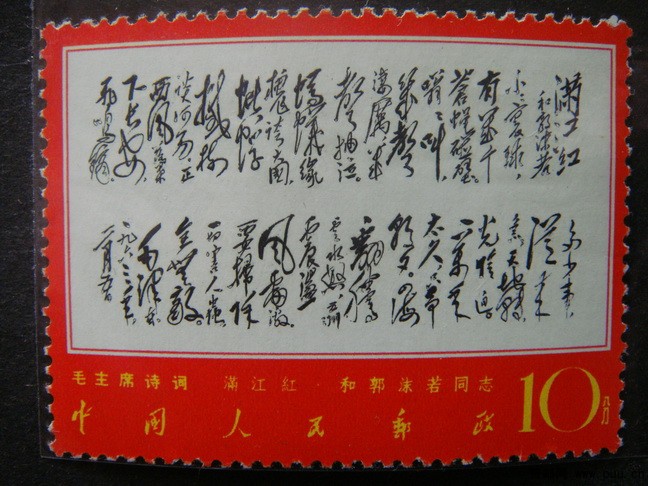 满江红
和郭沫若
小小寰球,
有几个
苍蝇碰壁
嗡嗡叫,
几声
凄厉,几
声抽泣。
蚂蚁缘
槐夸大国,
蚍蜉
撼树
谈何易。正
西风落叶
下长安,
飞鸣镝。
多少事,
从来
急。天地转,
光阴迫。
一万年
太久,只争
朝夕。四海
翻腾
云水怒,五洲
震荡
风雷激。
要扫除
一切害人虫,
全无敌。
毛泽东
一九六三年
一月九日
毛主席诗词 满江红·和郭沫若同志
中国人民邮政 10分